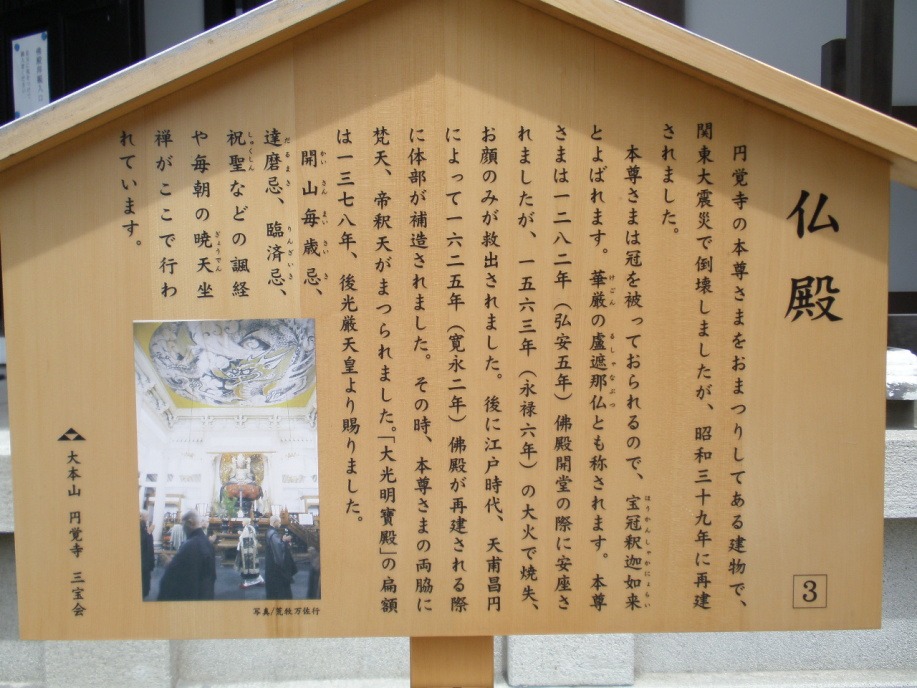 仏殿
円覚寺の本尊さまをおまつりしてある建物で、
関東大震災で倒壊しましたが、昭和三十九年に再建
されました。
本尊さまは冠を被っておられるので、宝冠釈迦如来
ほうかんしゃかにょらい
とよばれます。華厳の盧遮那仏とも称されます。本尊
けごん
るしゃなぶつ
さまは一二八二年(弘安五年)佛殿開堂の際に安座さ
れましたが、一五六三年(永禄六年)の大火で焼失、
お顔のみが救出されました。後に江戸時代、天甫昌円
によって一六二五年(寛永二年)佛殿が再建される際
に体部が補造されました。その時、本尊さまの両脇に
梵天、帝釈天がまつられました。「大光明寳殿」の扁額
は一三七八年、後光厳天皇より賜りました。
開山毎歳忌、
かいさんまいさいき
達磨忌、臨済忌、
だるまき
りんざいき
祝聖などの諷経
しゅくしん
や毎朝の暁天坐
ぎょうてん
禅がここで行わ
れています。
写真/荒牧万佐行
大本山 円覚寺 三宝会
3